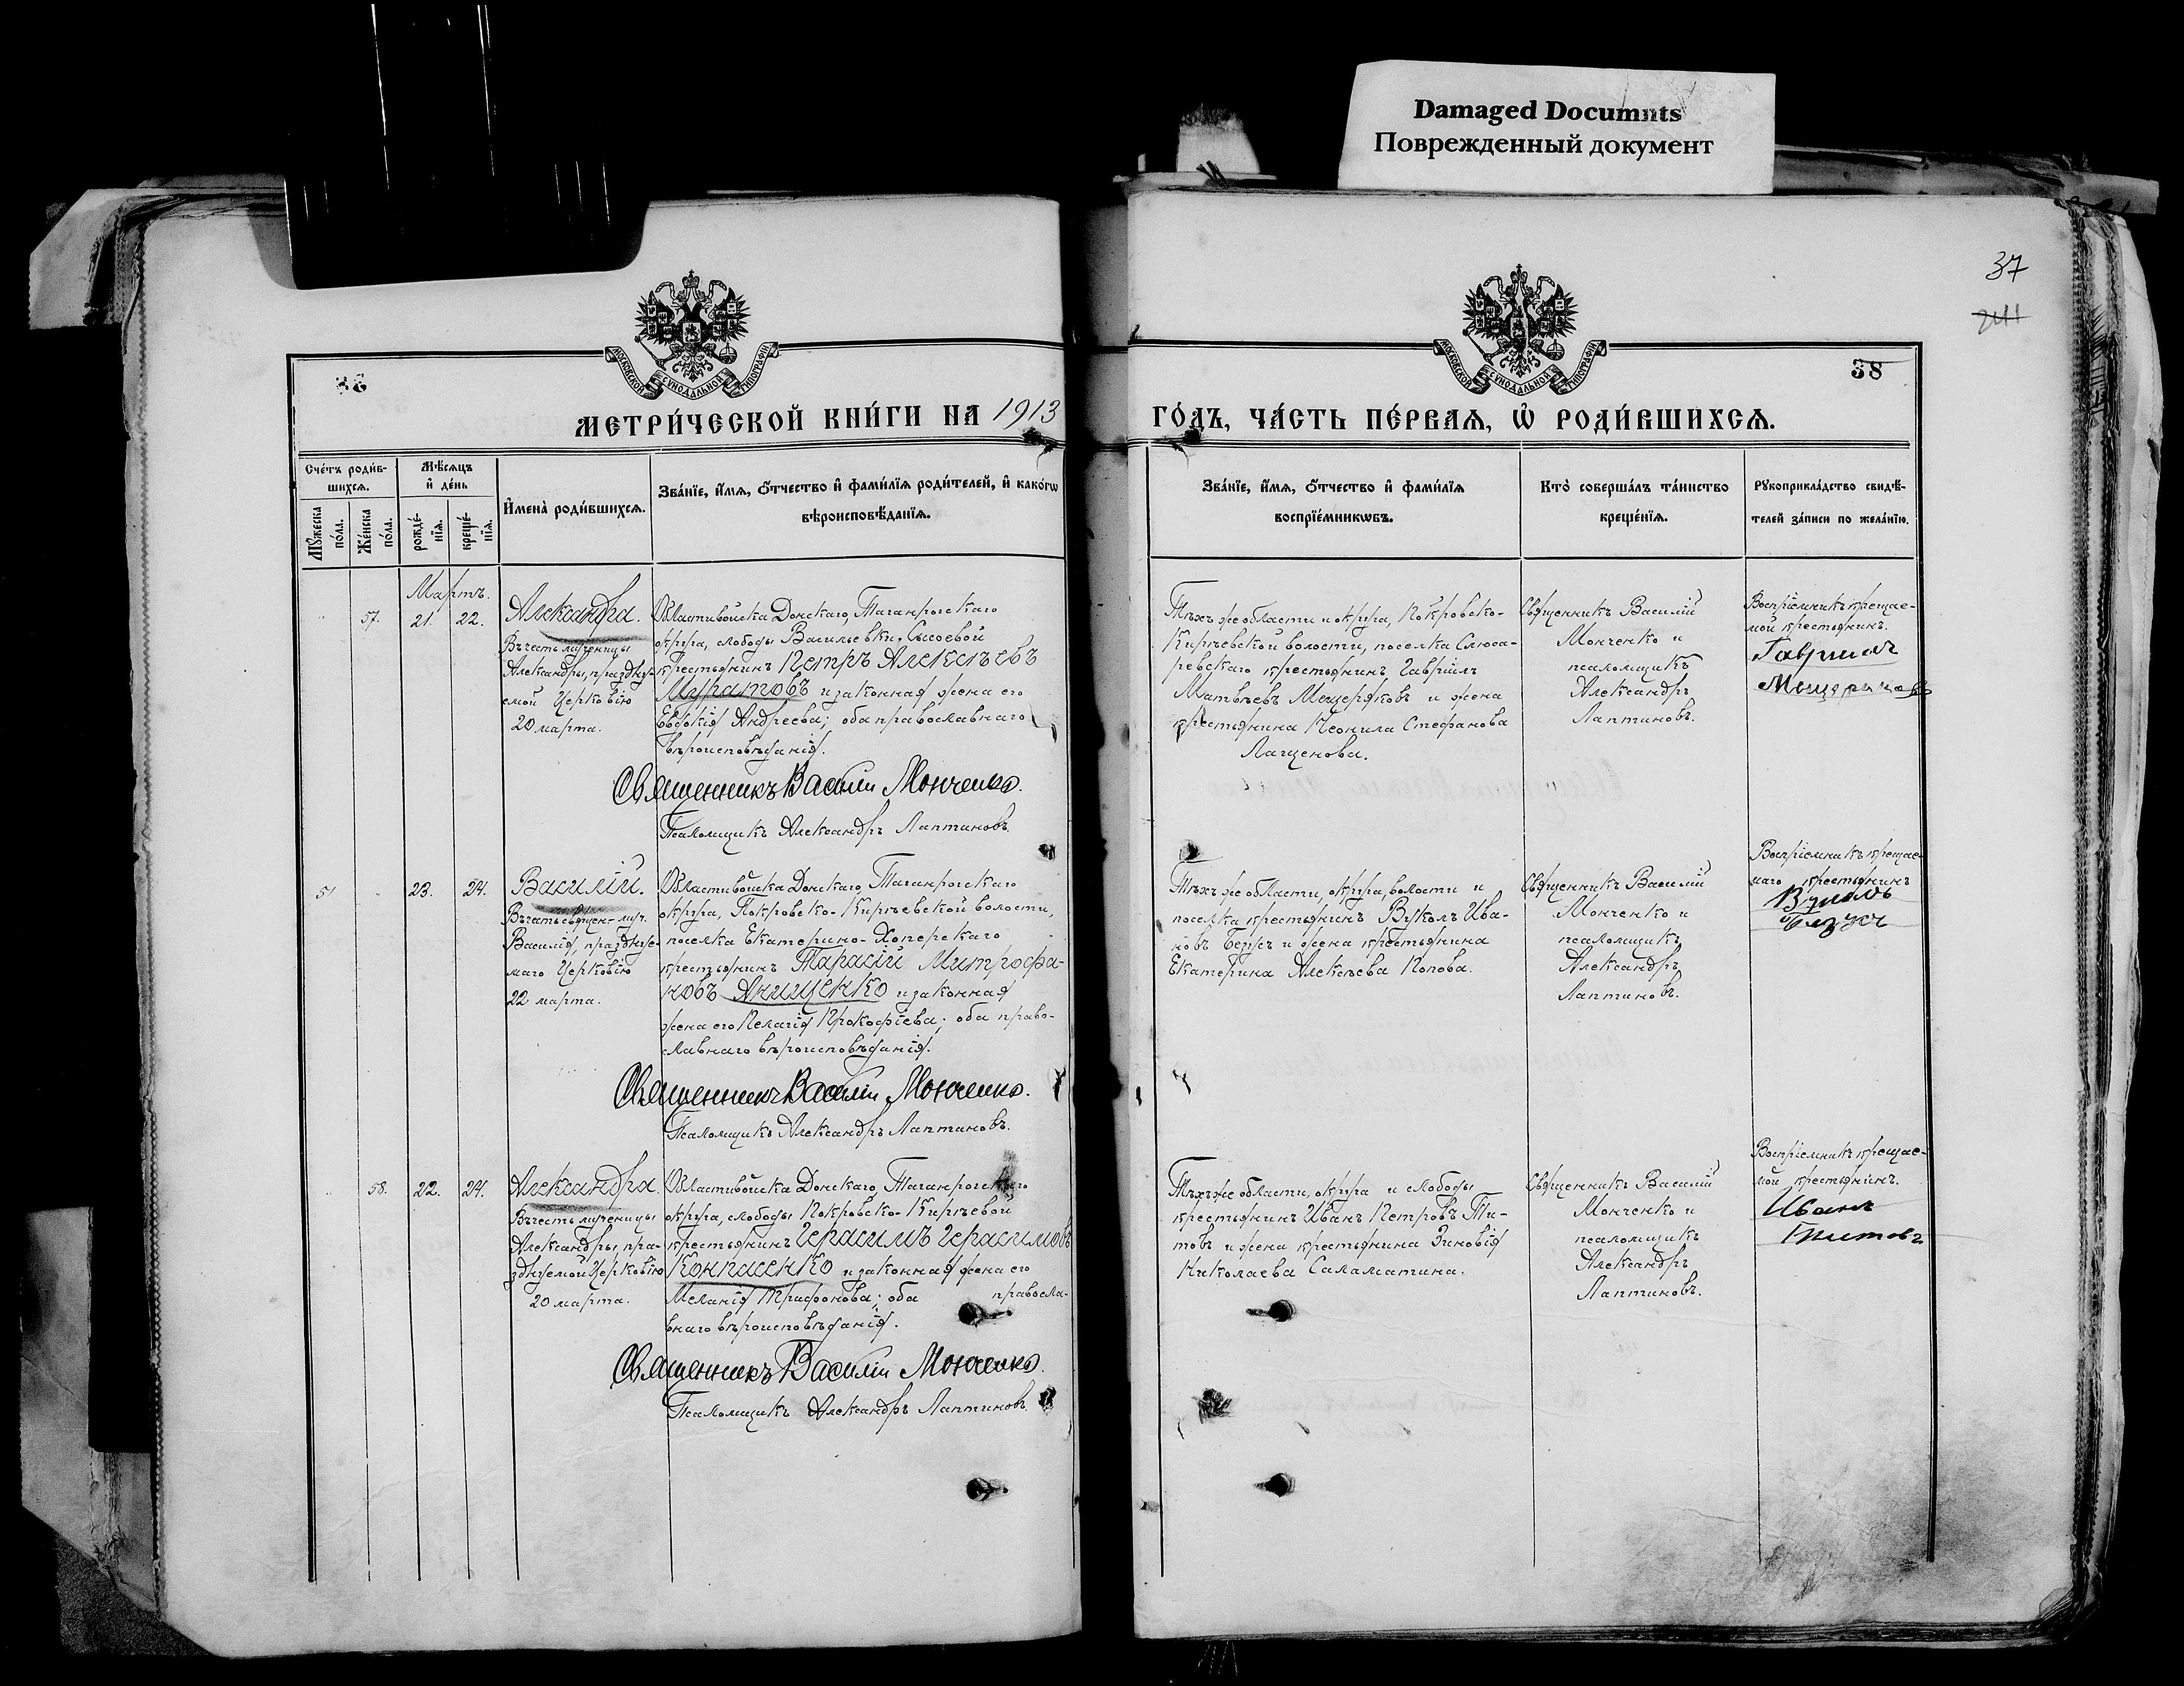 Damaged Documnts
Поврежденный документ
37
211
36
38
МОСКОВСКОЙ СѴНОДАЛЬНОЙ ТИПОГРАФІИ
МОСКОВСКОЙ СѴНОДАЛЬНОЙ ТИПОГРАФІИ
МЕТРИ́ЧЕСКОЙ КНИ́ГИ НА 1913
ГО́ДЪ, ЧА́СТЬ ПЕ́РВАЯ, Ѡ҆ РОДИ́ВШИХСЯ.
Сче́тъ роди́в-
шихся.
Мѣ́сяцъ
и҆ де́нь
Мꙋ́жеска
по́ла.
Же́нска
по́ла.
рожде́-
нїя.
креще́-
нїя.
И҆мена̀ роди́вшихся.
Зва́нїе, и҆́мя, ѻ҆́тчество и҆ фами́лїя роди́телей, и҆ како́гѡ
вѣроисповѣ́данїя.
Зва́нїе, и҆́мя, ѻ҆́тчество и҆ фами́лїя
воспрїе́мникѡвъ.
Кто̀ соверша́лъ та́инство
креще́нїя.
Рꙋкоприкла́дство свидѣ́-
телей за́писи по жела́нїю.
Мартъ.
57. 21. 22.
Александра.
Въ честь мученицы
Александры, праздну-
емой Церковію
20 марта.
Области войска Донскаго, Таганрогскаго
округа, слободы Васильевки, Сысоевой
крестьянинъ Петръ Алексѣевъ
Муратовъ и законная жена его
Евдокія Андреева; оба православнаго
вѣроисповѣданія.
Священникъ Василій Монченко.
Псаломщикъ Александръ Лаптиновъ.
Тѣхъ же области и округа, Покровско-
Кирѣевской волости, поселка Слюса-
ревскаго крестьянинъ Гавріилъ
Матвѣевъ Мещеряковъ и жена
крестьянина Неонила Стефанова
Лащенова.
Священникъ Василій
Монченко и
псаломщикъ
Александръ
Лаптиновъ.
Воспріемникъ крещае-
мой крестьянинъ.
Гавриилъ
Мещеряковъ
51 23. 24.
Василій.
Въ честь священ-муч.
Василія, празднуе-
маго Церковію
22 марта.
Области войска Донскаго, Таганрогскаго
округа, Покровско-Кирѣевской волости,
поселка Екатерино-Хоперскаго
крестьянинъ Тарасій Митрофа-
новъ Анищенко и законная
жена его Пелагія Прокофіева; оба право-
славнаго вѣроисповѣданія.
Священникъ Василій Монченко.
Псаломщикъ Александръ Лаптиновъ.
Тѣхъ же области, округа, волости и
поселка крестьянинъ Вуколъ Ива-
новъ Безукъ и жена крестьянина
Екатерина Алексѣева Попова.
Священникъ Василій
Монченко и
псаломщикъ
Александръ
Лаптиновъ.
Воспріемникъ крещае-
маго крестьянинъ
Вуколъ
58. 22. 24.
Александра.
Въ честь мученицы
Александры, пра-
зднуемой Церковію
20 марта.
Области войска Донскаго, Таганрогскаго
округа, слободы Покровско-Кирѣевой
крестьянинъ Герасимъ Герасимовъ
Компасенко и законная жена его
Меланія Трифонова; оба правосла-
внаго вѣроисповѣданія.
Священникъ Василій Монченко.
Псаломщикъ Александръ Лаптиновъ.
Тѣхъ же области, округа и слободы
крестьянинъ Иванъ Петровъ Ти-
товъ и жена крестьянина Зиновія
Николаева Саламатина.
Священникъ Василій
Монченко и
псаломщикъ
Александръ
Лаптиновъ.
Воспріемникъ крещае-
мой крестьянинъ.
Иванъ
Титовъ